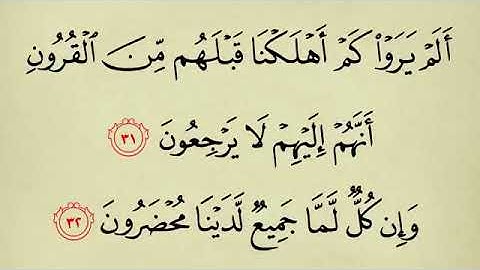 أَلَمْ يَرَوْا۟ كَمْ أَهْلَكْنَا قَبْلَهُم مِّنَ ٱلْقُرُونِ
أَنَّهُمْ إِلَيْهِمْ لَا يَرْجِعُونَ ٣١
وَإِن كُلٌّ لَّمَّا جَمِيعٌ لَّدَيْنَا مُحْضَرُونَ ٣٢